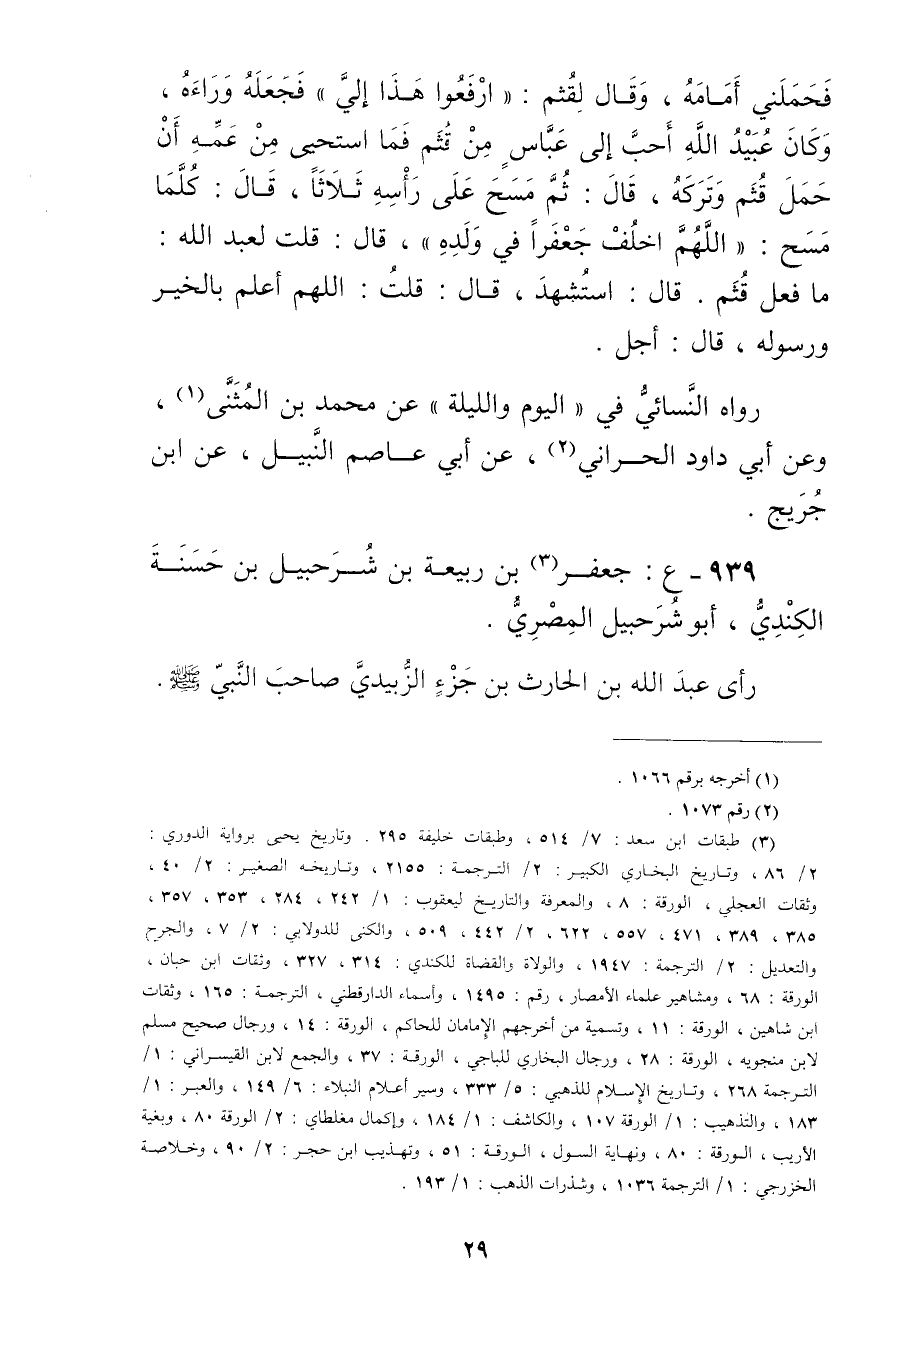 فَحَمَلَني أَمَامَهُ ، وَقَال لِقُثم : « ارْفَعُوا هَذَا إليَّ » فَجَعَلَهُ وَرَاءَهُ ،
وَكَانَ عُبَيْدُ اللَّهِ أَحبَّ إلى عَبَّاسٍ مِنْ قُثَم فَمَا استحيى مِنْ عَمِّهِ أَنْ
حَمَلَ قُثَم وَتَرَكَهُ ، قَالَ : ثُمَّ مَسَحَ عَلَى رَأْسِهِ ثَلَاثَاً ، قَالَ : كُلَّمَا
مَسَح : « اللَّهُمَّ اخلُفْ جَعْفَراً في وَلَدِهِ » ، قال : قلت لعبد الله :
ما فعل قُثَم . قال : استُشهدَ ، قال : قلتُ : اللهم أعلم بالخير
ورسوله ، قال : أجل .
رواه النَّسائيُّ في « اليوم والليلة » عن محمد بن المُثَنَّى(١) ،
وعن أبي داود الحراني(٢) ، عن أبي عاصم النَّبيل ، عن ابن
جُرَيج .
٩٣٩ - ع : جعفر(٣) بن ربيعة بن شُرَحبيل بن حَسَنَةَ
الكِنْدِيُّ ، أبو شُرَحبيل المِصْرِيُّ .
رأى عبدَ الله بن الحارث بن جَزْءٍ الزُّبيديَّ صاحبَ النَّبيّ ﷺ .
(١) أخرجه برقم ١٠٦٦ .
(٢) رقم ١٠٧٣ .
(٣) طبقات ابن سعد : ٧/ ٥١٤ ، وطبقات خليفة ٢٩٥ . وتاريخ يحيى برواية الدوري :
٢/ ٨٦ ، وتاريخ البخاري الكبير : ٢/ الترجمة : ٢١٥٥ ، وتاريخه الصغير : ٢/ ٤٠ ،
وثقات العجلي ، الورقة : ٨ ، والمعرفة والتاريخ ليعقوب : ١/ ٢٤٢ ، ٢٨٤ ، ٣٥٣ ، ٣٥٧ ،
٣٨٥ ، ٣٨٩ ، ٤٧١ ، ٥٥٧ ، ٦٢٢ ، ٢/ ٤٤٢ ، ٥٠٩ ، والكنى للدولابي : ٢/ ٧ ، والجرح
والتعديل : ٢/ الترجمة : ١٩٤٧ ، والولاة والقضاة للكندي : ٣١٤ ، ٣٢٧ ، وثقات ابن حبان ،
الورقة : ٦٨ ، ومشاهير علماء الأمصار ، رقم : ١٤٩٥ ، وأسماء الدارقطني ، الترجمة : ١٦٥ ، وثقات
ابن شاهين ، الورقة : ١١ ، وتسمية من أخرجهم الإمامان للحاكم ، الورقة : ١٤ ، ورجال صحيح مسلم
لابن منجويه ، الورقة : ٢٨ ، ورجال البخاري للباجي ، الورقة : ٣٧ ، والجمع لابن القيسراني : ١/
الترجمة ٢٦٨ ، وتاريخ الإسلام للذهبي : ٥/ ٣٣٣ ، وسير أعلام النبلاء : ٦/ ١٤٩ ، والعبر : ١/
١٨٣ ، والتذهيب : ١/ الورقة ١٠٧ ، والكاشف : ١/ ١٨٤ ، وإكمال مغلطاي : ٢/ الورقة ٨٠ ، وبغية
الأريب ، الورقة : ٨٠ ، ونهاية السول ، الورقة : ٥١ ، وتهذيب ابن حجر : ٢/ ٩٠ ، وخلاصة
الخزرجي : ١/ الترجمة ١٠٣٦ ، وشذرات الذهب : ١/ ١٩٣ .
٢٩